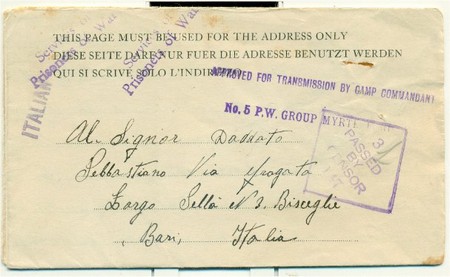 THIS PAGE MUST BE USED FOR THE ADDRESS ONLY
DIESE SEITE DARF NUR FUER DIE ADRESSE BENUTZT WERDEN
QUI SI SCRIVE SOLO L'INDIRIZZO
Prisoner of War
Prisoner of War
ITALIAN
APPROVED FOR TRANSMISSION BY CAMP COMMANDANT
No. 5 P.W. GROUP MYRTLE
PASSED
BY
CENSOR
Al Signor Daddato
Sebbastiano Via
Largo Sella N 3. Bisceglie
Bari, Italia